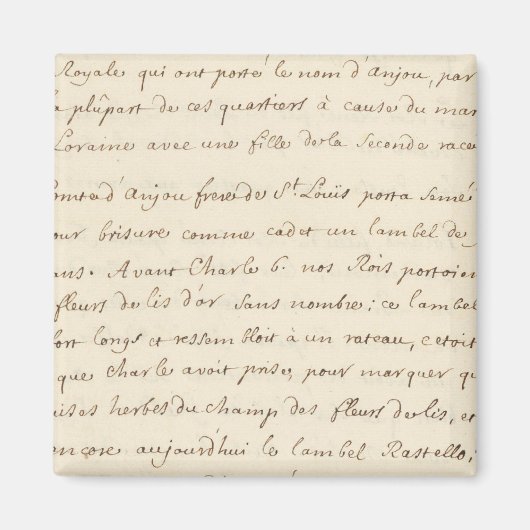 Royale qui ont porté le nom d'Anjou, par
la plûpart de ces quartiers à cause du mar
Loraine avec une fille de la seconde race
omte d'Anjou frere de St. Loüis porta semé
our brisure comme cadet un lambel de
ans. Avant Charle 6. nos Rois portoien
fleurs de lis d'or sans nombre; ce lambel
fort longs et ressembloit à un rateau, c'etoit
que Charle avoit prise, pour marquer qu
ises herbes du champ des fleurs de lis, et
encore aujourd'hui le lambel Rastello;